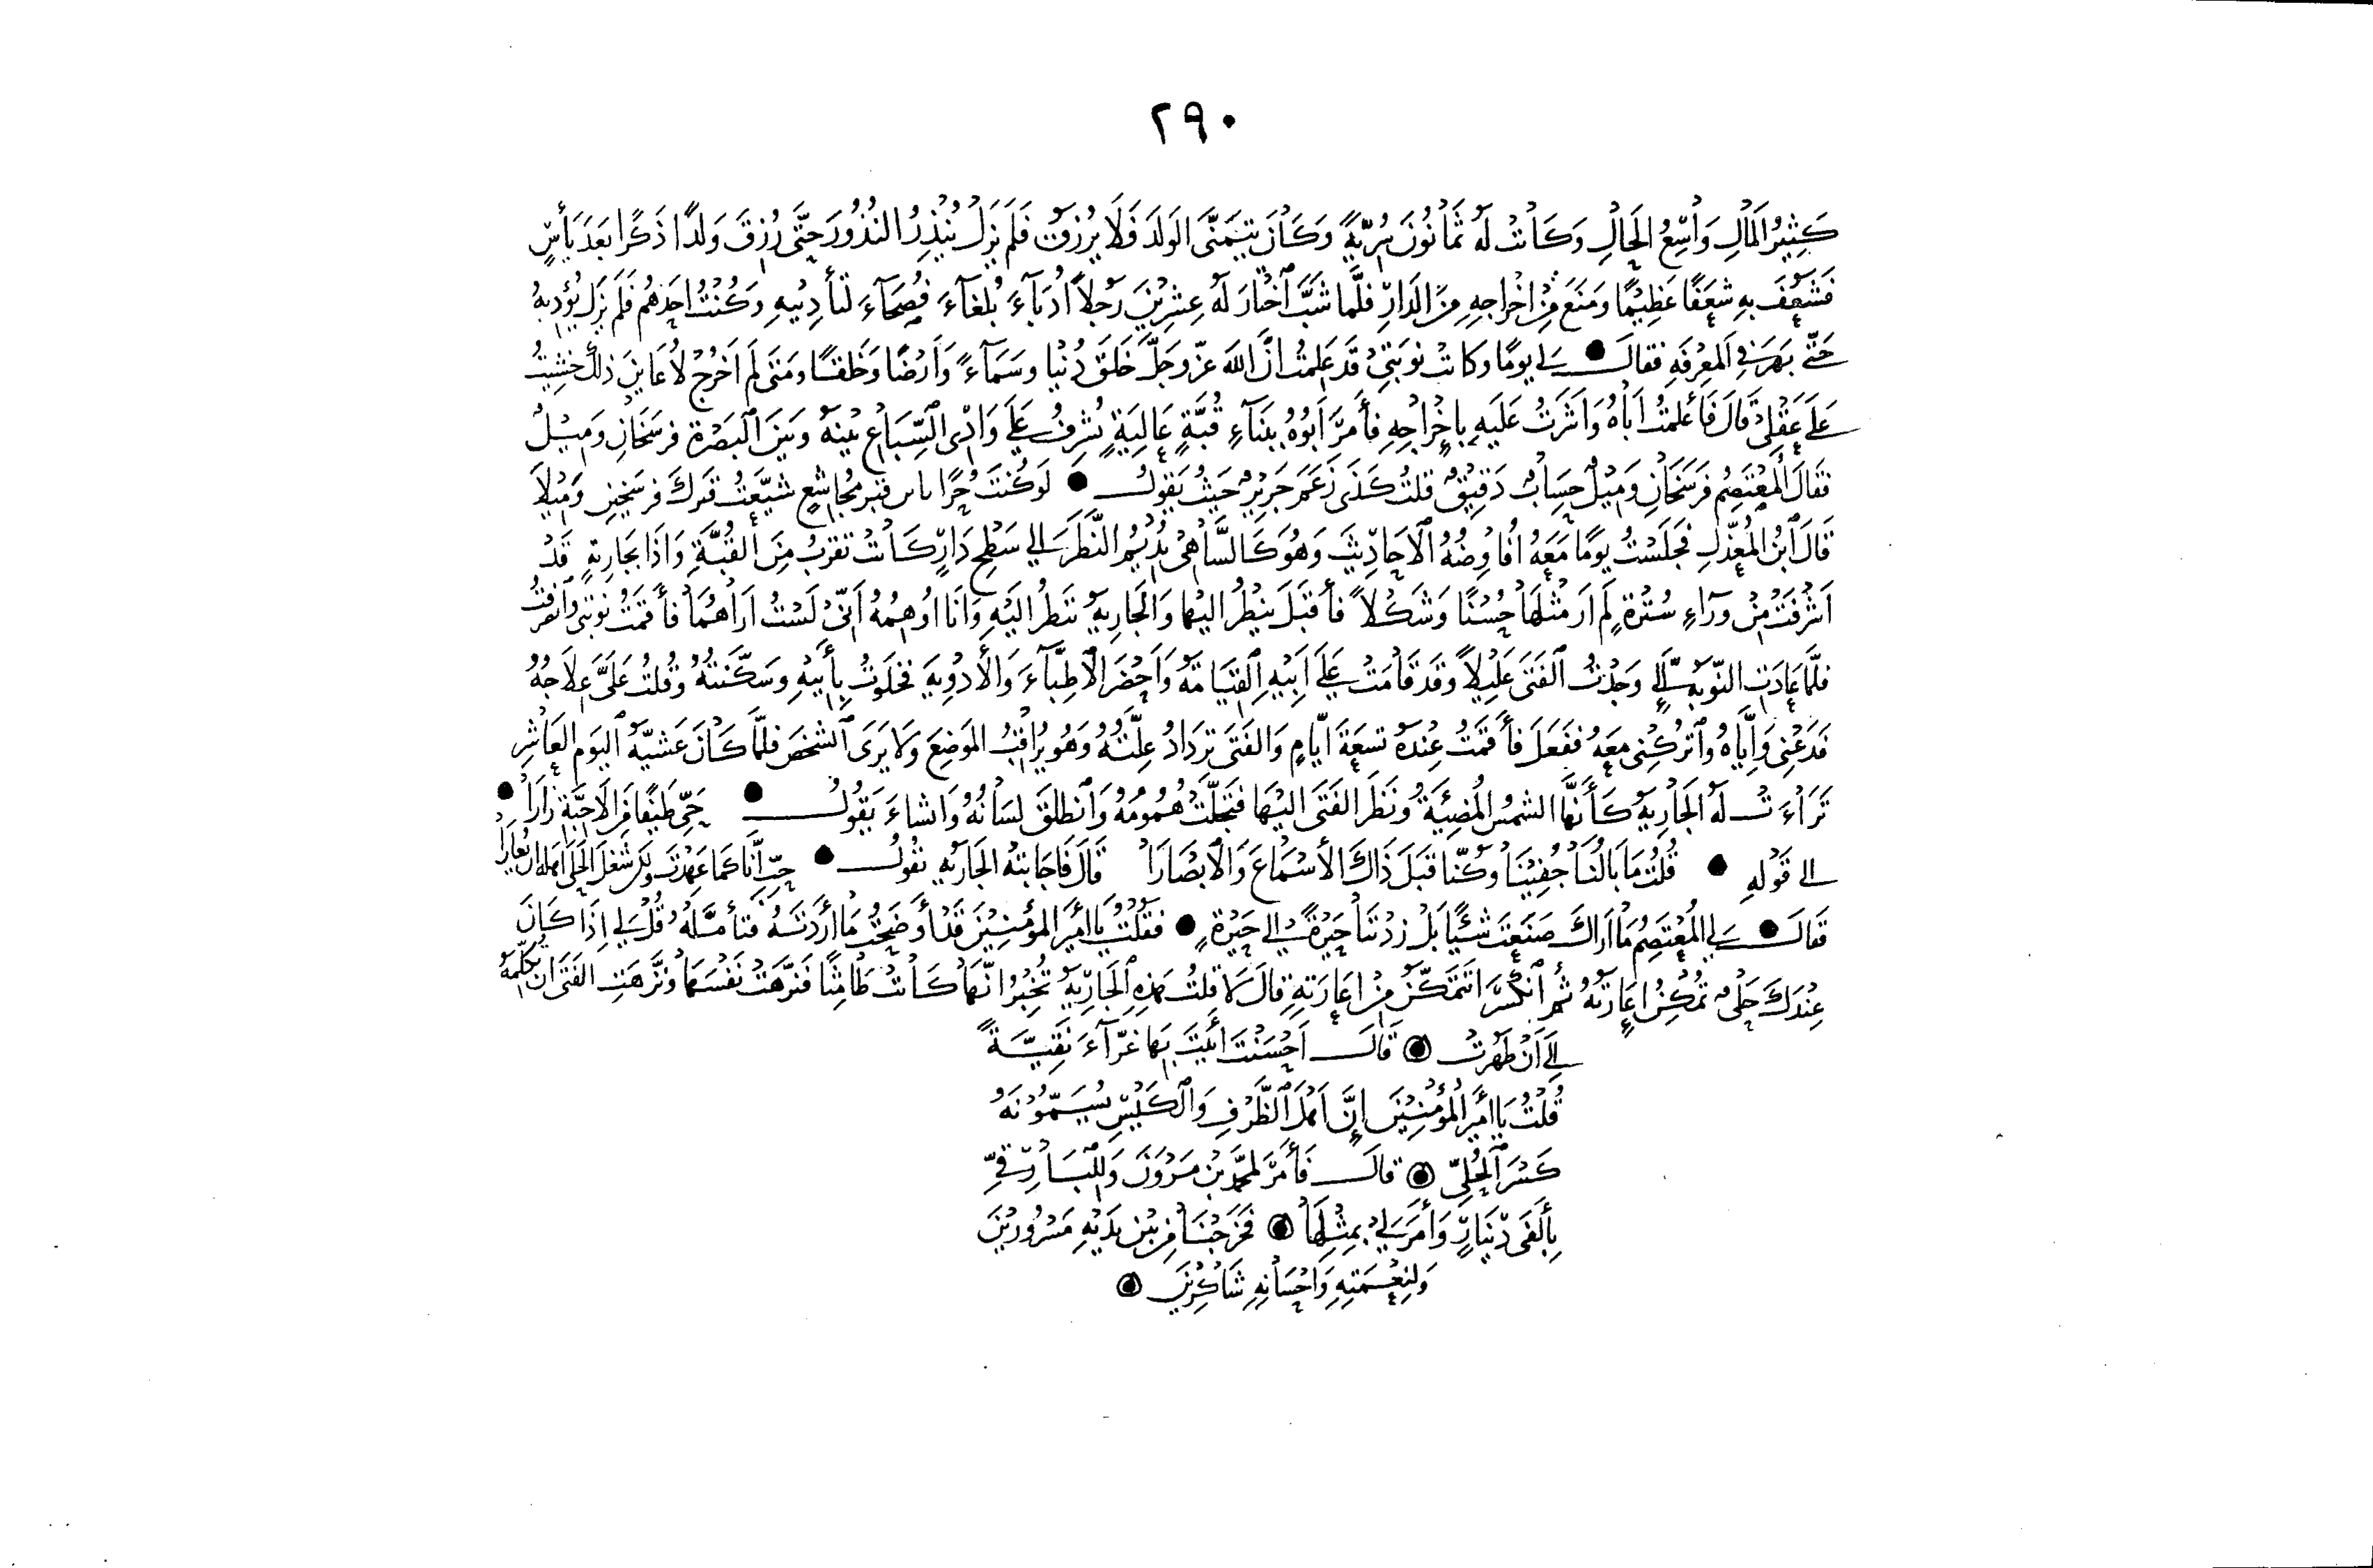 ٢٩٠
كَثِيرُ المَالِ وَاسِعُ الحَالِ وَكَانَتْ لَهُ ثَمَانُونَ سُرِّيَّةً وَكَانَ يَتَمَنَّى الوَلَدَ فَلَا يُرْزَقُ فَلَمْ يَزَلْ يُنْذِرُ النُذُورَ حَتَّى رُزِقَ وَلَدًا ذَكَرًا بَعْدَ يَأْسٍ
فَشُعِفَ بِهِ شَعَفًا عَظِيمًا وَمَنَعَ مِنْ اخْرَاجِهِ مِنَ الدَارِ فَلَمَّا شَبَّ اخْتَارَ لَهُ عِشْرِينَ رَجُلًا ادَبَآءَ بُلَغَآءَ فُصَحَآءَ لِتَأْدِيبِهِ وَكُنْتُ احَدَهُمْ فَلَمْ نَزَلْ نُؤَدِبُهُ
حَتَّى بَهَرَ فِي المَعْرِفَةِ فَقَالَ لِي يَوْمًا وَكَانَتْ نَوْبَتِي قَدْ عَلِمْتُ انَّ اللهَ عَزَّ وَجَلَّ خَلَقَ دُنْيَا وَسَمَآءً وَارْضًا وَخَلْقًا وَمَتَى لَمْ اخْرُجْ لأُعَايِنَ ذلِكَ خَشِيتُ
عَلَى عَقْلِي قَالَ فَأَعْلَمْتُ ابَاهُ وَاشَرْتُ عَلَيْهِ بِاخْرَاجِهِ فَأَمَرَ ابُوهُ بِبِنَآءِ قُبَّةٍ عَالِيَةٍ تُشْرِفُ عَلَى وَادِى السِّبَاعِ بَيْنَهُ وَبَيْنَ البَصْرَةِ فَرْسَخَانِ وَمِيلٌ
فَقَالَ المُعْتَصِمُ فَرْسَخَانِ وَمِيلٌ حِسَابٌ دَقِيقٌ قُلْتُ كَذَى زَعَمَ جَرِيرٌ حَيْثُ يَقُولُ لَوْ كُنْتَ حُرًّا يابن قين مُجَاشِعٍ شَيَّعْتَ ضَيْفَكَ فرسخين وَمِيلًا
قَالَ ابْنُ المُعَذَّلِ فَجَلَسْتُ يَوْمًا مَعَهُ افَاوِضُهُ الاحَادِيثَ وَهُوَ كَالسَّاهِى يُدِيمُ النَّظَرَ الى سَطْحِ دَارٍ كَانَتْ تَقْرُبُ مِنَ القُبَّةِ وَاذَا بِجَارِيَةٍ قَدْ
اشْرَفَتْ مِنْ وَرَآءِ سُتْرَةٍ لَمْ ارَ مِثْلَهَا حُسْنًا وَشَكْلًا فَأَقْبَلَ يَنْظُرُ الَيْهَا وَالجَارِيَةُ تَنْظُرُ الَيْهِ وَانَا اوهِمُهُ انِّى لَسْتُ ارَاهُمَا فَأَقَمْتُ نَوْبَتِى وَانْصَرَفْتُ
فَلَمَّا عَادَتِ النَّوْبَةُ الَىَّ وَجَدْتُ الفَتَى عَلِيلًا وَقَدْ قَامَتْ عَلَى ابِيهِ القِيَامَةُ وَاحْضَرَ الاطِبَّآءَ وَالأَدْوِيَةَ فَخَلَوْتُ بِأَبِيهِ وَسَكَّنْتُهُ وَقُلْتُ عَلَىَّ عِلَاجُهُ
فَدَعْنِى وَايَّاهُ وَاتْرُكْنِى مَعَهُ فَفَعَلَ فَأَقَمْتُ عِنْدَهُ تِسْعَةَ ايَّامٍ وَالفَتَى تَزْدَادُ عِلَّتُهُ وَهُوَ يُرَاقِبُ المَوْضِعَ وَلَا يَرَى الشَخْصَ فَلَمَّا كَانَ عَشِيَّةُ اليَوْمِ العَاشِرِ
تَرَاءَتْ لَهُ الجَارِيَةُ كَأَنَّهَا الشَمْسُ المُضِيئَةُ وَنَظَرَ الفَتَى الَيْهَا فَتَجَلَّتْ هُمُومُهُ وَانْطَلَقَ لِسَانُهُ وَانْشَاءَ يَقُولُ حَىِّ طَيْفًا مِنَ الاحِبَّةِ زَارَا
الى قَوْلِهِ قُلْتُ مَا بَالُنَا جُفِينَا وَكُنَّا قَبْلَ ذَاكَ الأَسْمَاعَ وَالابْصَارَا قَالَ فَاجَابَتْهُ الجَارِيَةُ تَقُولُ انَّا كَمَا عَهِدْتَ ولكن شَغَلَ الحَلْىُ اهله ان يُعَارَا
فَقَالَ لِي المُعْتَصِمُ مَا ارَاكَ صَنَعْتَ شَيْئًا بَلْ زِدْتَنَا حَيْرَةً الى حَيْرَةٍ فَقُلْتُ يَا امِيرَ المُؤْمِنِينَ قَدْ اوْضَحْتُ مَا ارَدْتَهُ فَتَأَمَّلْهُ قُلْ لِي اذَا كَانَ
عِنْدَكَ حَلْىٌ تُمْكِنُ اعَارَتُهُ ثُمَّ انْكَسَرَ اتَتَمَكَّنُ مِنْ اعَارَتِهِ قَالَ لَا قُلْتُ هَذِهِ الجَارِيَةُ تُخْبِرُ انَّهَا كَانَتْ طَامِثًا فَنَزَّهَتْ نَفْسَهَا وَنَزَّهَتِ الفَتَى ان تُكَلِّمَهُ
الَى انْ طَهُرَتْ قَالَ احْسَنْتَ اتَيْتَ بِهَا غَرَّآءَ نَقِيَّةً
قُلْتُ يَا امِيرَ المُؤْمِنِينَ انَّ اهْلَ الظَّرْفِ وَالكَيْسِ يُسَمُّونَهُ
كَسْرَ الحُلِىِّ قَالَ فَأَمَرَ لِمُحَمَّدِ بْنِ مَسْرُوقٍ وَلِلْبَارِقِيِّ
بِأَلْفَى دِينَارٍ وَأَمَرَ لِي بِمِثْلِهَا فَخَرَجْنَا مِنْ بَيْنِ يَدَيْهِ مَسْرُورِينَ
وَلِنِعْمَتِهِ وَاحْسَانِهِ شَاكِرِينَ